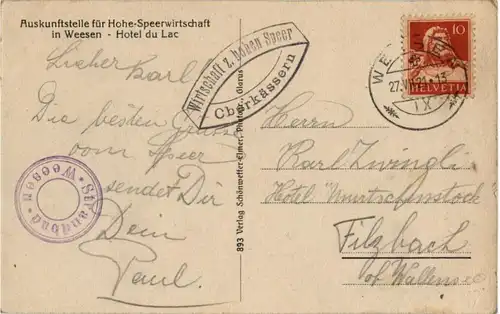 Auskunftstelle für Hohe-Speerwirtschaft
in Weesen - Hotel du Lac
Lieber Karl!
Die besten Grüsse
vom Speer
sendet Dir
Dein
Paul.
Wirtschaft z. hohen Speer
Oberkäsern
Strandbad · Weesen ·
893 Verlag Schönwetter-Elmer, Glarus
10
HELVETIA
27. 21
IX
Herrn
Karl Zwingli
Hotel "Murtschenstock
Filzbach
ob Wallensee